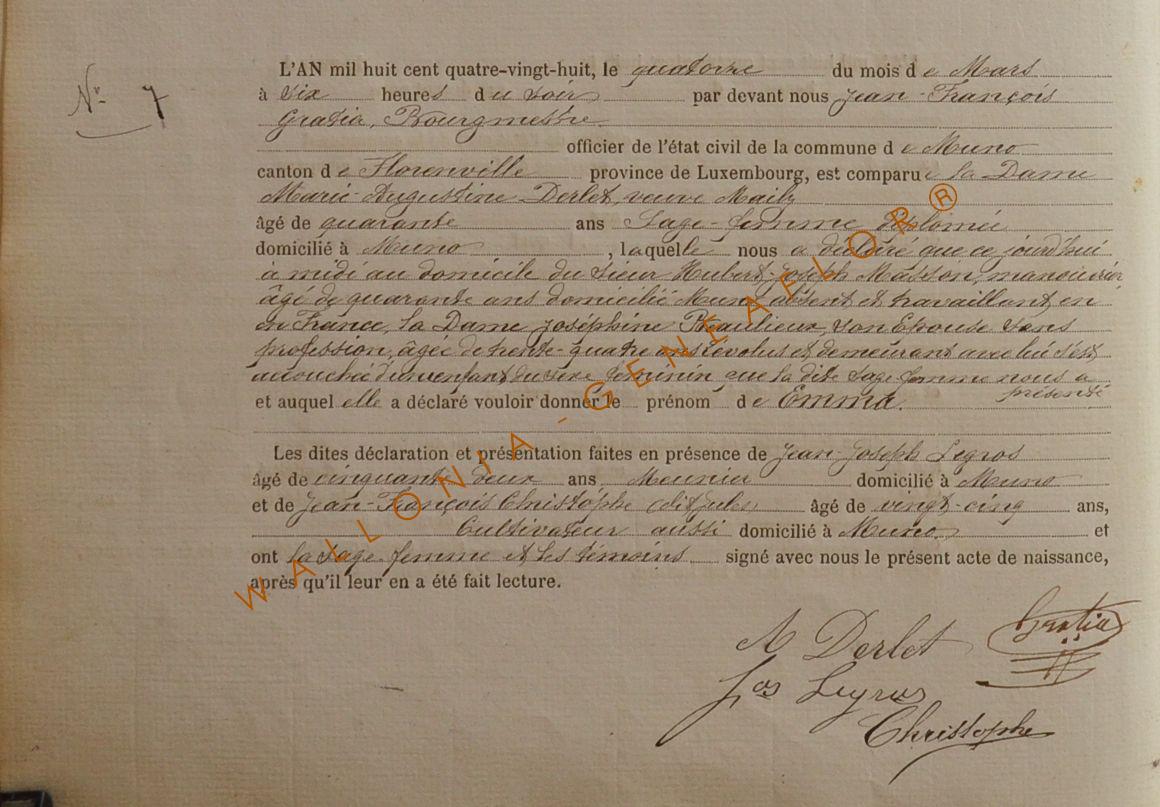 N° 7
L'AN mil huit cent quatre-vingt-huit, le quatorze du mois de Mars
à six heures du soir par devant nous Jean-François
Gratia, Bourgmestre
officier de l'état civil de la commune de Muno
canton de Florenville province de Luxembourg, est comparue la Dame
Marie-Augustine Derlet, veuve
âgé de quarante ans Sage-femme diplomée
domicilié à Muno, laquelle nous a déclaré que ce jourd'hui
à midi au domicile du sieur Hubert-Joseph Masson, manouvrier
âgé de quarante ans domicilié Muno absent et travaillant en
en France, la Dame Joséphine Beaulieux, son Epouse sans
profession, âgée de trente-quatre ans révolus et demeurant avec lui s'est
accouchée d'un enfant du sexe féminin que la dite sage-femme nous a
présenté
et auquel elle a déclaré vouloir donner le prénom de Emma.
Les dites déclaration et présentation faites en présence de Jean-Joseph Legros
âgé de cinquante deux ans, Meunier domicilié à Muno
et de Jean-François Christophe dit Jules âgé de vingt-cinq ans,
Cultivateur aussi domicilié à Muno, et
ont la sage femme et les témoins signé avec nous le présent acte de naissance,
après qu'il leur en a été fait lecture.
A Derlet
Gratia
Jos Legros
Christophe
WALLONIA-GENEALOR®